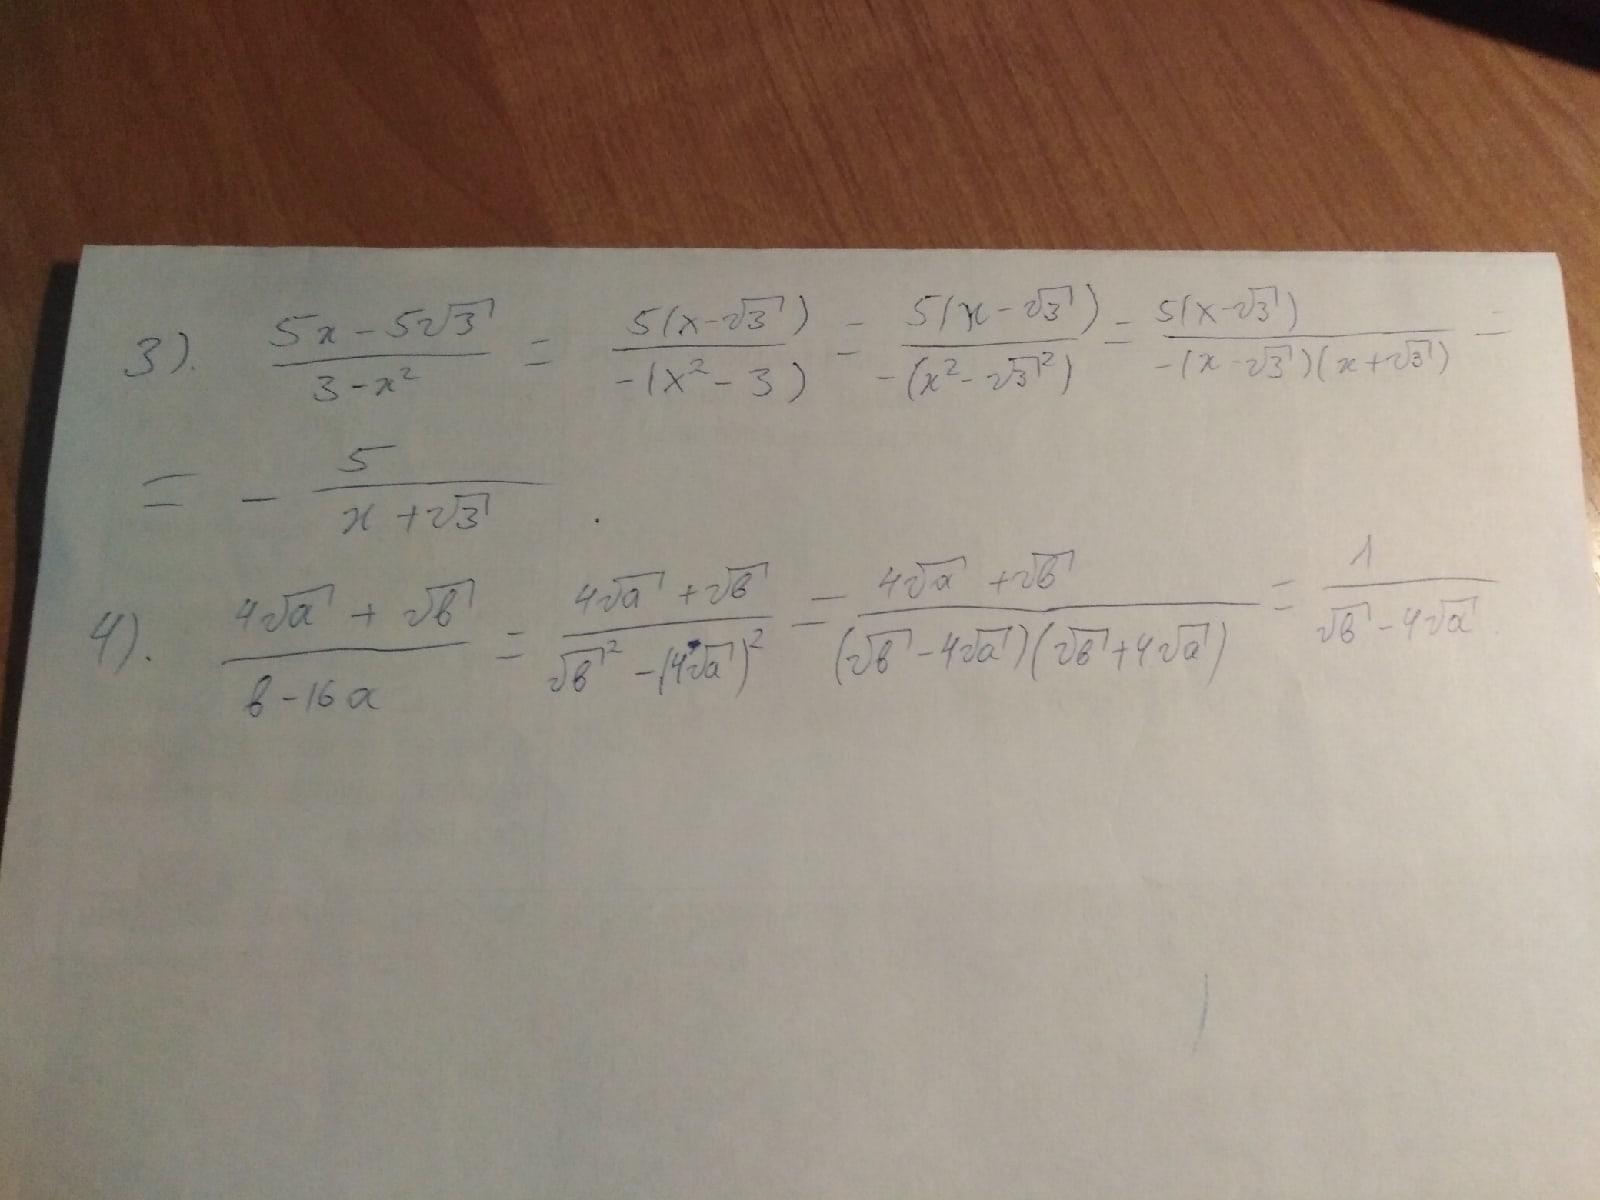 3). (5x - 5√3)/(3 - x²) = 5(x - √3)/(-(x² - 3)) = 5(x - √3)/(-(x² - √3²)) = 5(x - √3)/(-(x - √3)(x + √3)) =
= - 5/(x + √3)
4). (4√a + √в)/(в - 16a) = (4√a + √в)/(√в² - (4√a)²) = (4√a + √в)/((√в - 4√a)(√в + 4√a)) = 1/(√в - 4√a)